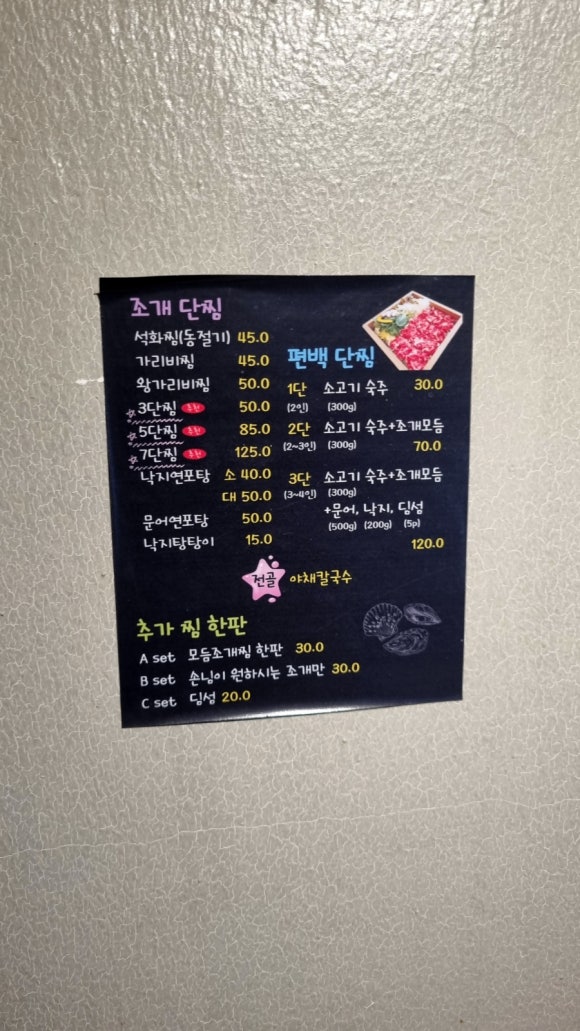 조개 단찜
석화찜(동절기) 45.0
가리비찜 45.0
왕가리비찜 50.0
3단찜 추천 50.0
5단찜 추천 85.0
7단찜 추천 125.0
낙지연포탕 소 40.0
대 50.0
문어연포탕 50.0
낙지탕탕이 15.0
편백 단찜
1단 소고기 숙주 30.0
(2인) (300g)
2단 소고기 숙주+조개모듬
(2~3인) (300g) 70.0
3단 소고기 숙주+조개모듬
(3~4인) (300g)
+문어, 낙지, 딤섬
(500g) (200g) (5p)
120.0
전골 야채칼국수
추가 찜 한판
A set 모듬조개찜 한판 30.0
B set 손님이 원하시는 조개만 30.0
C set 딤섬 20.0